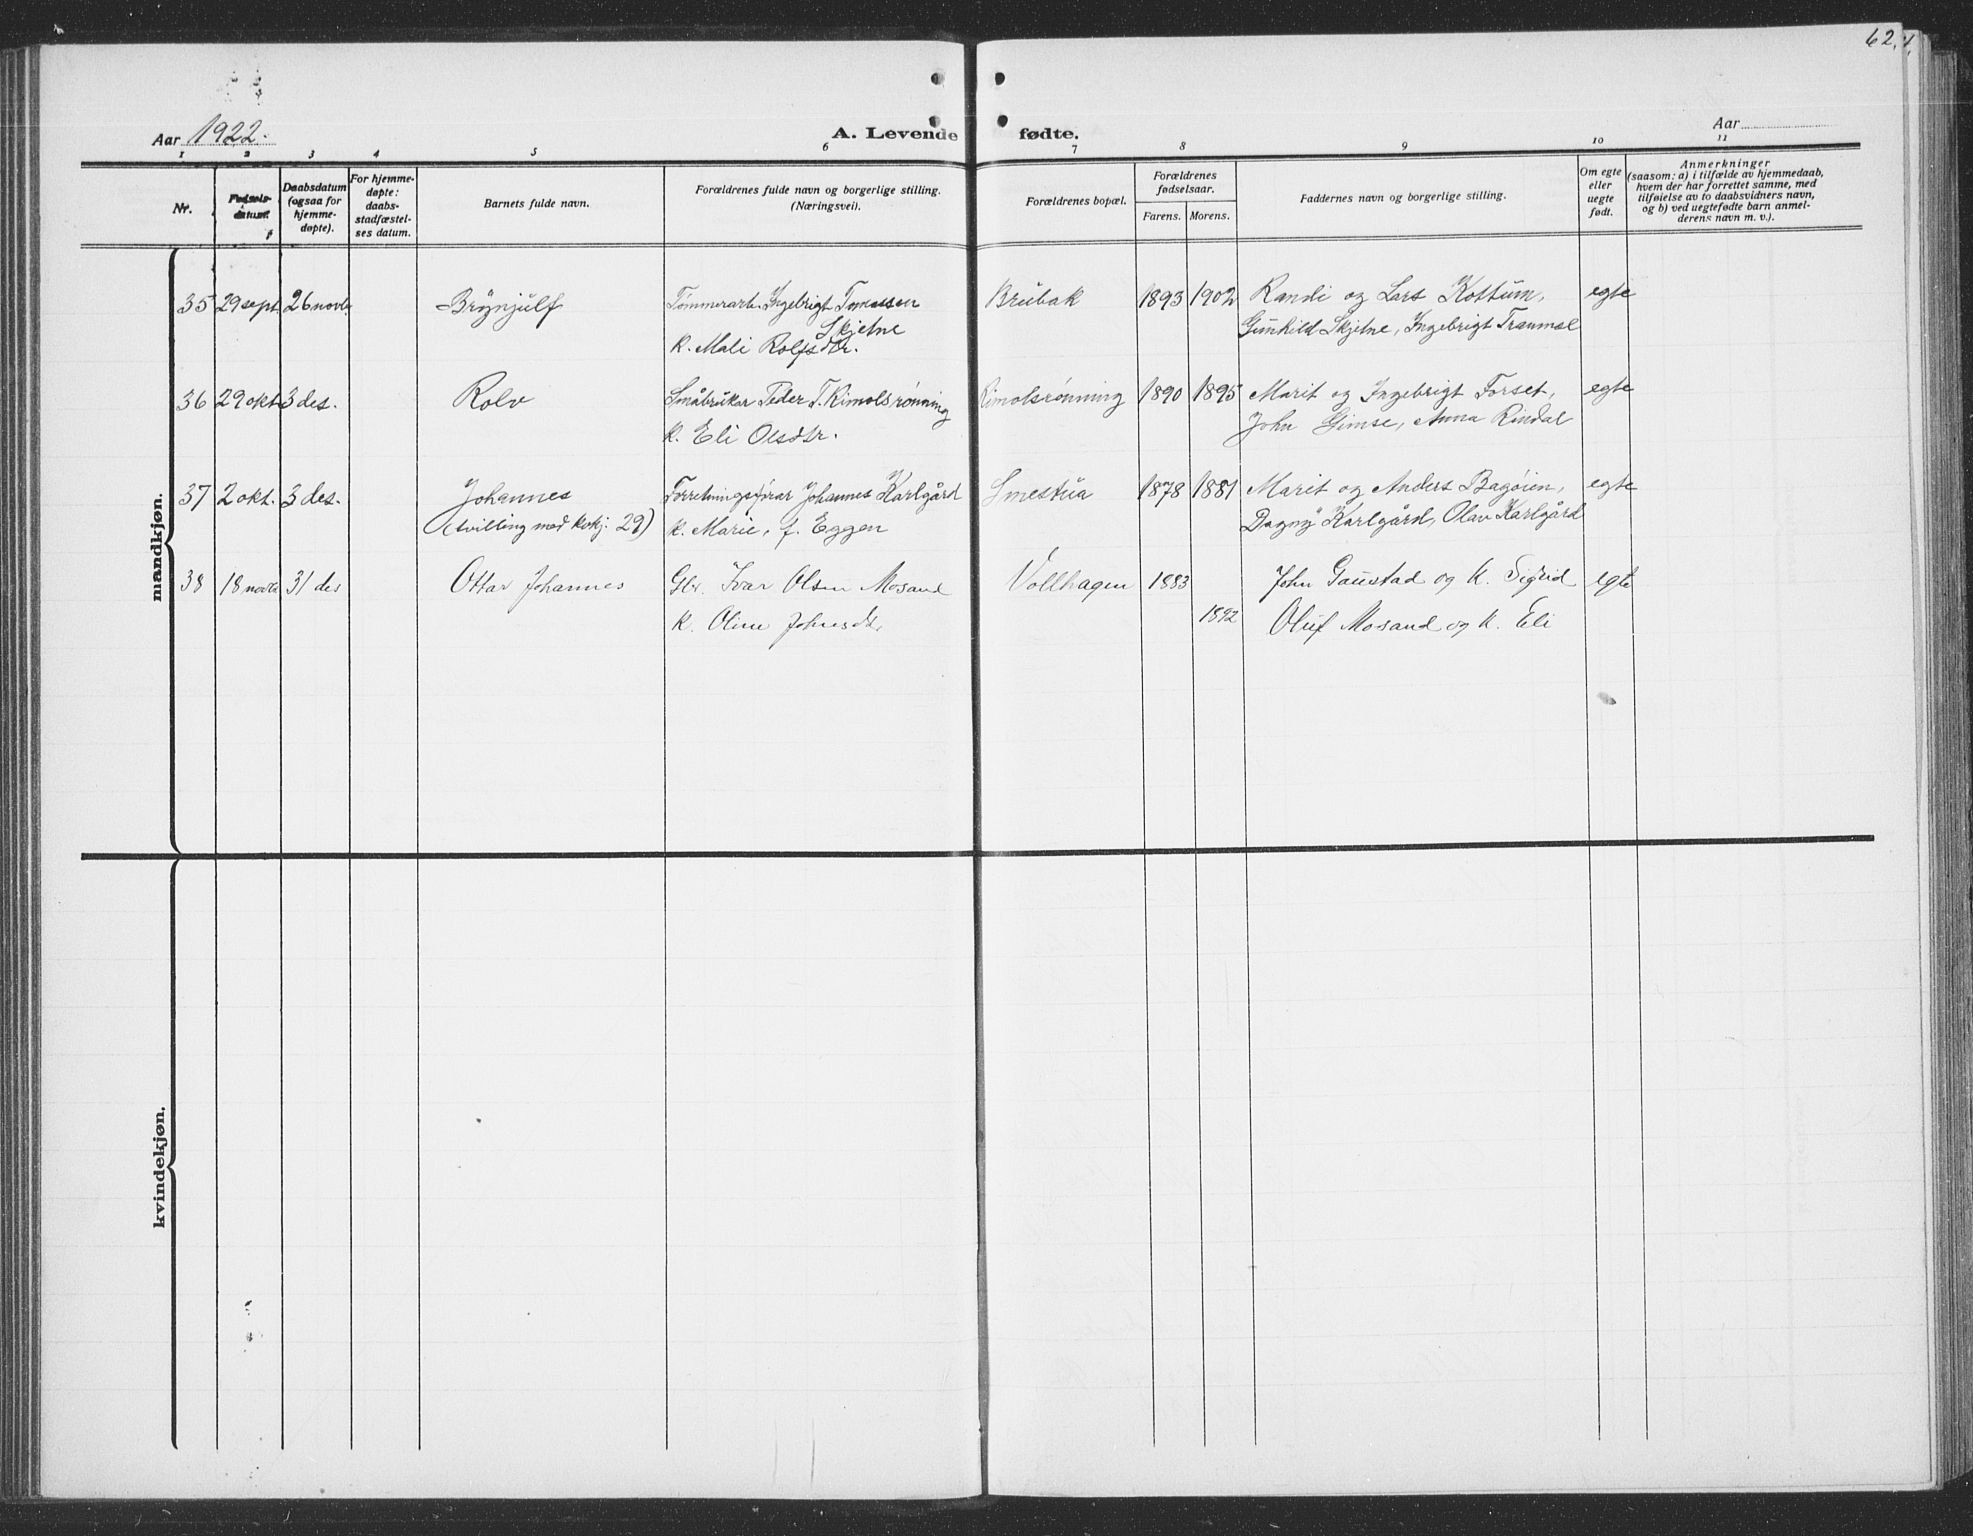 62.
Aar 1922. A. Levende fødte. Aar
1 2 3 4 5 6 7 8 9 10 11
Nr.
Fødsels-
datum.
Daabsdatum
(ogsaa for
hjemme-
døpte).
For hjemme-
døpte:
daabs-
stadfæstel-
ses datum.
Barnets fulde navn.
Forældrenes fulde navn og borgerlige stilling.
(Næringsvei).
Forældrenes bopæl.
Forældrenes
fødselsaar.
Farens. Morens.
Faddernes navn og borgerlige stilling.
Om egte
eller
uegte
født.
Anmerkninger
(saasom: a) i tilfælde av hjemmedaab,
hvem der har forrettet samme, med
tilføielse av to daabsvidners navn,
og b) ved uegtefødte barn anmel-
derens navn m. v.).
mandkjøn.
35 29 sept. 26 novb Brynjulf Tømmerarb. Ingebrigt Tomassen Brubak 1893 1902 Randi og Lars Kottum, egte
Skjetne Gunhild Skjetne, Ingebrigt Traumsl
k. Mali Rolfsdtr.
36 29 okt 3 des. Rolv Småbrukar Peder T. Kimolsrønning Kimolsrønning 1890 1895 Marit og Ingebrigt Forset, egte
k. Eli Olsdtr. John Gimse, Anna Rindal
37 2 okt. 3 des. Johannes Forretningsførar Johannes Karlgård Smestua 1878 1881 Marit og Anders Bagøien, egte
(tvilling med kvkj. 29) k. Marie, f. Eggen Dagny Karlgård, Olav Karlgård
38 18 novb 31 des Ottar Johannes Gbr. Ivar Olsen Mosand Vollhagen 1883 John Gaustad og k. Sigrid egte
k. Oline Johnsdt. 1892 Oluf Mosand og k. Eli
kvindekjøn.